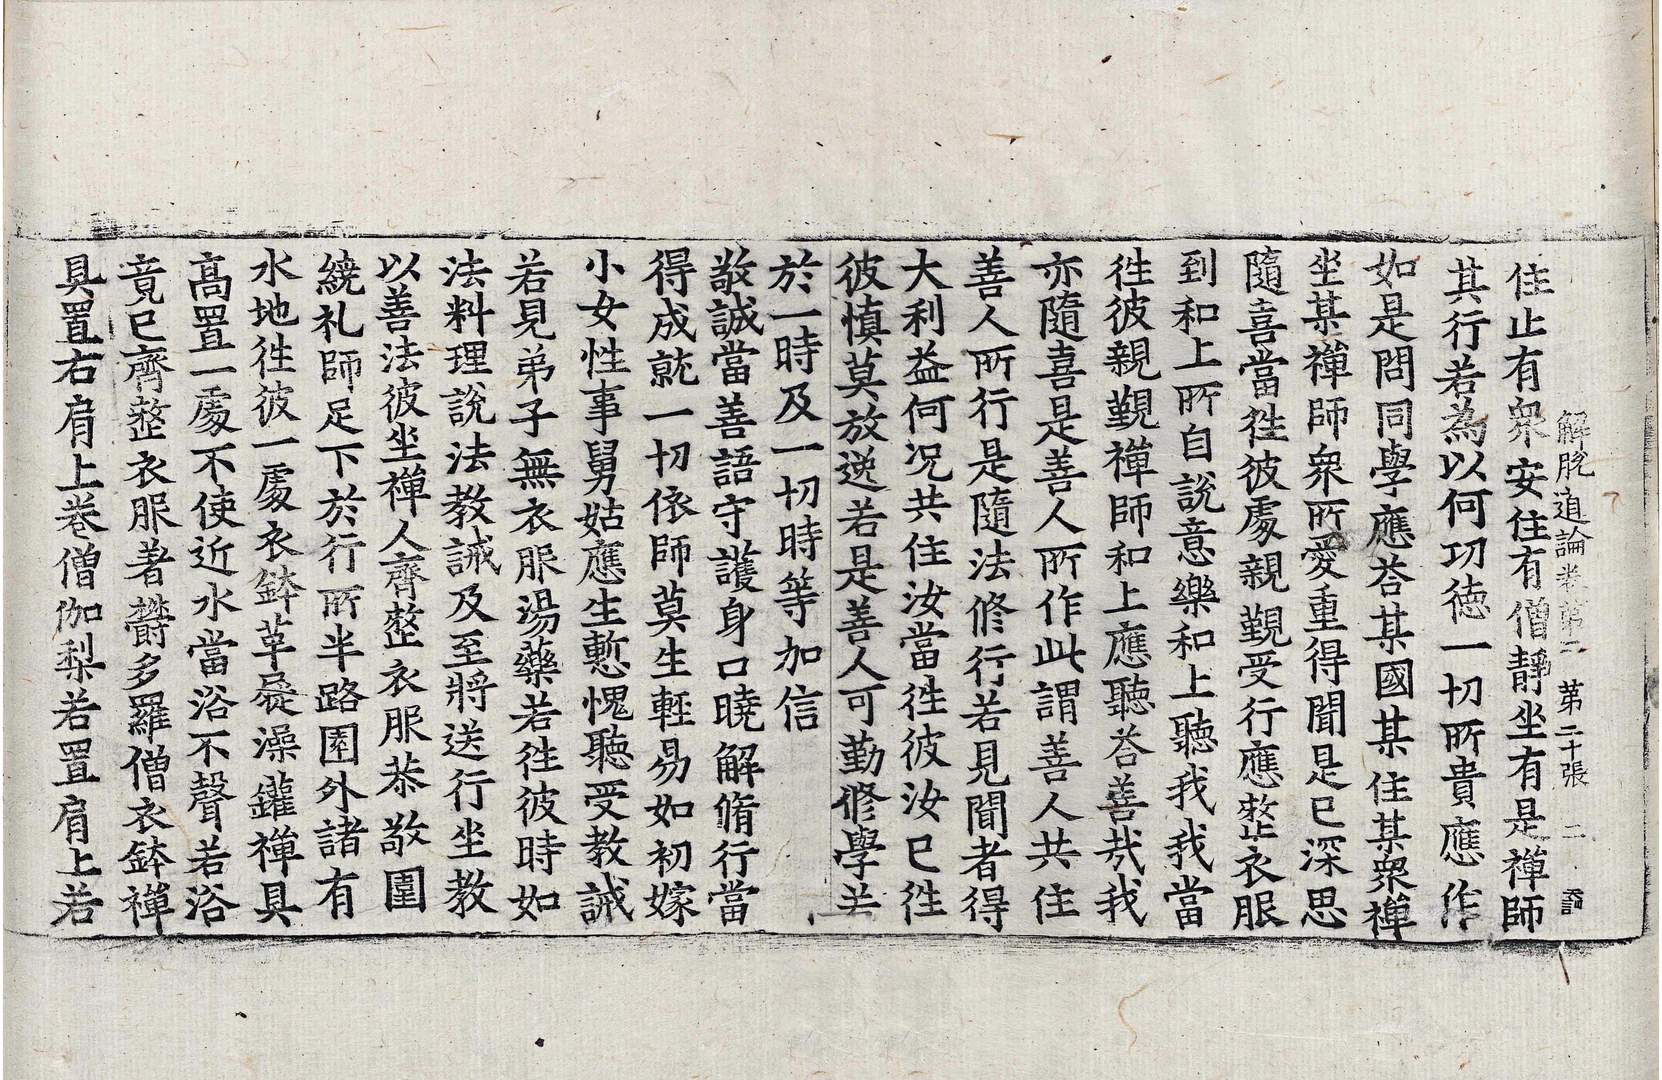 解脫道論卷第二 第二十張 二
住止有衆安住有僧靜坐有是禪師
其行若為以何功徳一切所貴應作
如是問同學應荅某國某住某衆禪
坐某禪師衆所愛重得聞是已深思
隨喜當徃彼處親覲受行應整衣服
到和上所自說意樂和上聽我我當
徃彼親覲禪師和上應聽荅善哉我
亦隨喜是善人所作此謂善人共住
善人所行是隨法修行若見聞者得
大利益何况共住汝當徃彼汝已徃
彼慎莫放逸若是善人可勤修學並
於一時及一切時等加信
敬誠當善語守護身口曉解脩行當
得成就一切依師莫生輕易如初嫁
小女性事舅姑應生慙愧聽受教誡
若見弟子無衣服湯藥若徃彼時如
法料理說法教誡及至將送行坐教
以善法彼坐禪人齊整衣服恭敬圍
繞礼師足下於行所半路園外諸有
水地徃彼一處衣鉢革屣澡鑵禪具
高置一處不使近水當浴不聲若浴
竟已齊整衣服著欝多羅僧衣鉢禪
具置右肩上卷僧伽梨若置肩上若